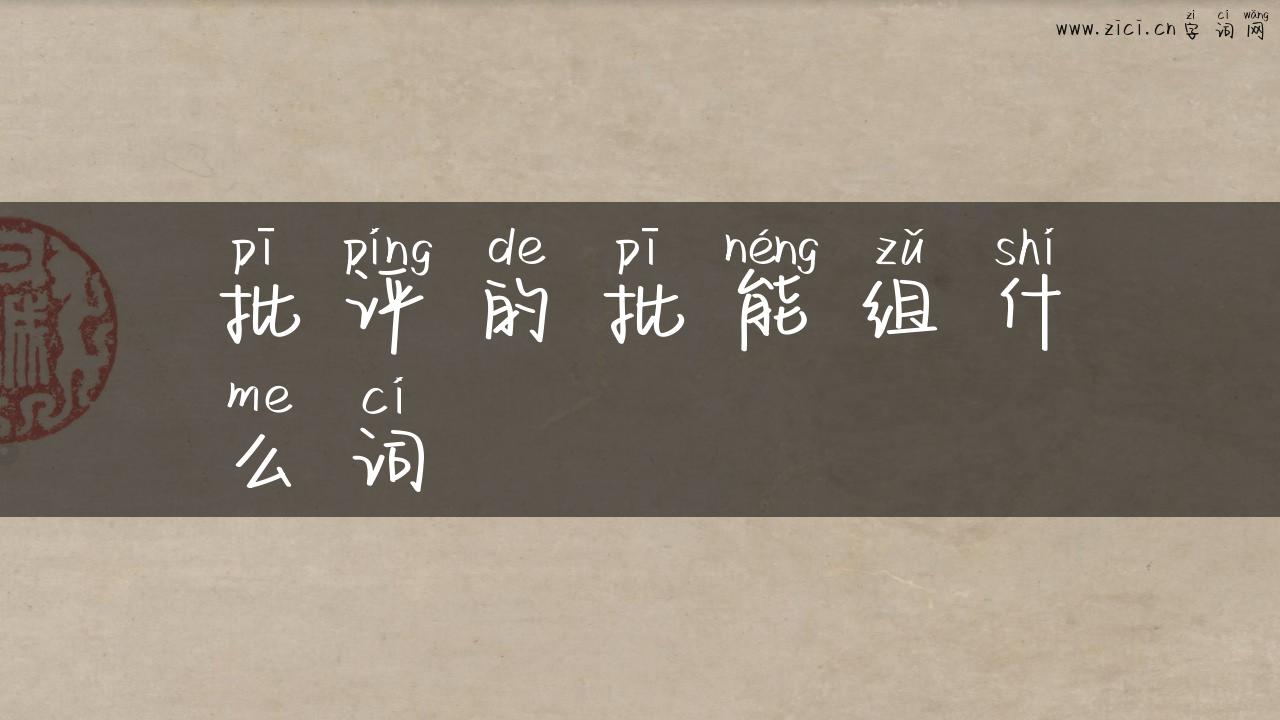 www.zici.cn 字词网
zì cí wǎng
pī píng de pī néng zǔ shí
批评的批能组什
me cí
么词